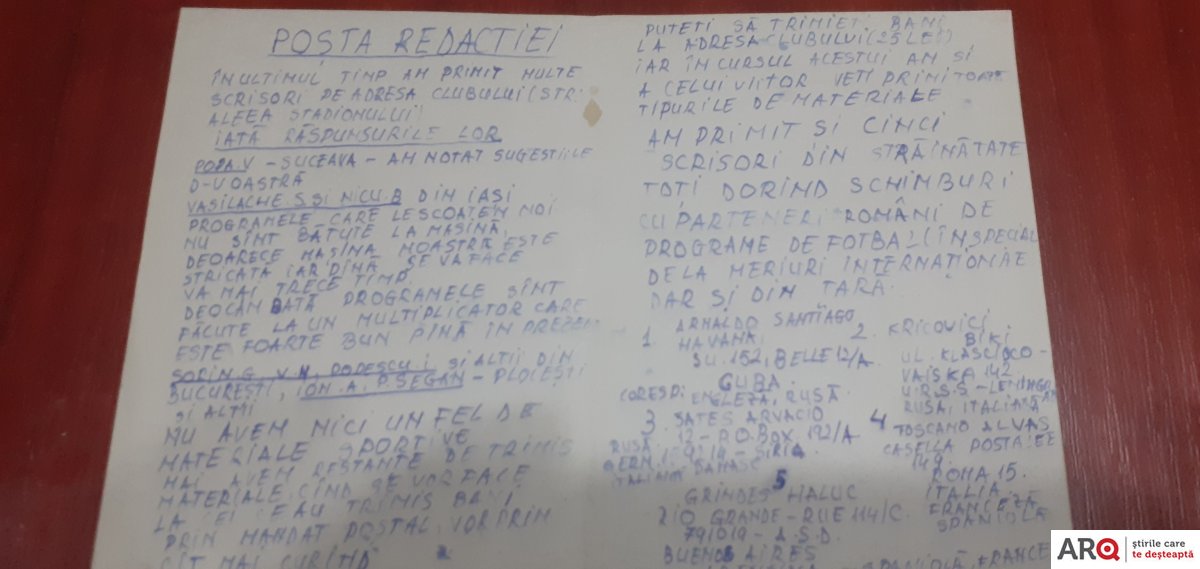 POȘTA REDACTIEI
ÎN ULTIMUL TIMP AM PRIMIT MULTE
SCRISORI PE ADRESA CLUBULUI (STR.
ALEEA STADIONULUI
IATĂ RĂSPUNSURILE LOR
POPA V – SUCEAVA – AM NOTAT SUGESTIILE
D-VOASTRĂ
VASILACHE S ȘI NICU B DIN IAȘI
PROGRAMELE CARE LE SCOATEM NOI
NU SÎNT BĂTUTE LA MAȘINĂ,
DEOARECE MAȘINA NOASTRĂ ESTE
STRICATĂ IAR PÎNĂ SE VA FACE
VA MAI TRECE TIMP
DEOCAMDATĂ PROGRAMELE SÎNT
FĂCUTE LA UN MULTIPLICATOR CARE
ESTE FOARTE BUN PÎNĂ ÎN PREZENT
SORIN G. V. N. POPESCU I ȘI ALȚII DIN
BUCUREȘTI, ION. A. P. SEGAN – PLOEȘTI
ȘI ALȚII
NU AVEM NICI UN FEL DE
MATERIALE SPORTIVE
MAI AVEM RESTANTE DE TRIMIS
MATERIALE, CÎND SE VOR FACE
LA CEI CE AU TRIMIS BANI
PRIN MANDAT POȘTAL VOR PRIMI
CÎT MAI CURÎND
PUTETI SĂ TRIMITEȚI BANI
LA ADRESA CLUBULUI (25 LEI)
IAR ÎN CURSUL ACESTUI AN ȘI
A CELUI VIITOR VEȚI PRIMI TOATE
TIPURILE DE MATERIALE
AM PRIMIT ȘI CINCI
SCRISORI DIN STRĂINĂTATE
TOȚI DORIND SCHIMBURI
CU PARTENERI ROMÂNI DE
PROGRAME DE FOTBAL (ÎN SPECIAL
DE LA MERIURI INTERNAȚIONAE
DAR ȘI DIN ȚARĂ.
1. ARNALDO SANTIAGO
HAVANA.
SU. 152, BELLE 12/A.
CUBA.
CORESP: ENGLEZĂ, RUSĂ
2. KRICOVICI
BIKI
UL. KLASCIOCO-
VAISKA 142.
U.R.S.S. – LENINGR
RUSA, ITALIANĂ
3. SATES ARVACIO
12 – P.O. BOX. 192/A
RUSĂ
GERM. – SIRIA.
ITALIANĂ DAMASC
4 TOSCANO ALVAS
CASELLA POSTALEE
149.
ROMA 15.
ITALIA.
FRANCEZĂ
SPANIOLĂ
5
GRINDES HALUC
RIO GRANDE – RUE 114/C.
791019 – A.S.D.
BUENOS AIRES
ARQ știrile care
te deșteaptă